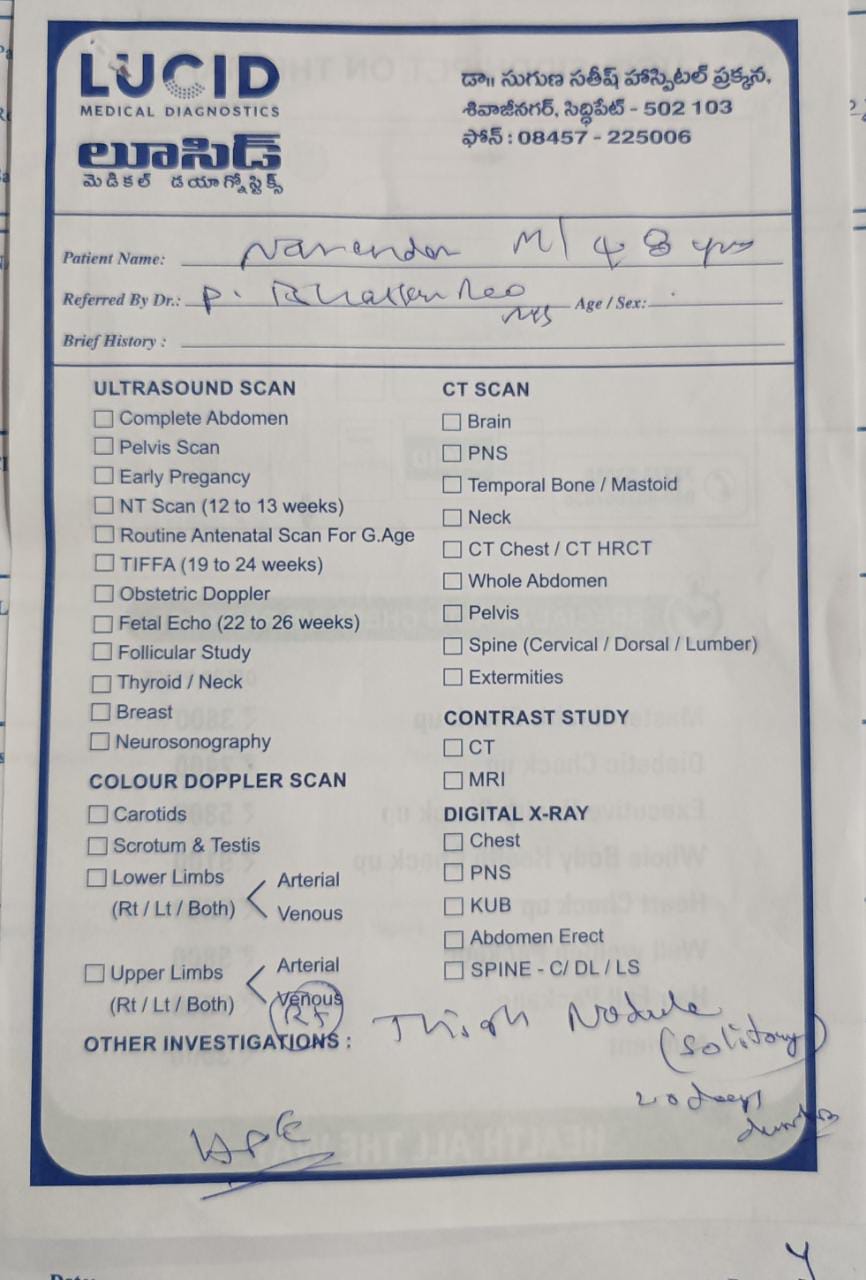 LUCID
MEDICAL DIAGNOSTICS
లూసిడ్
మెడికల్ డయాగ్నోస్టిక్స్
డా॥ సుగుణ సతీష్ హాస్పిటల్ ప్రక్కన,
శివాజీనగర్, సిద్ధిపేట్ - 502 103
ఫోన్ : 08457 - 225006
Patient Name: Narender M/ 48 yrs
Referred By Dr.: P. Rao
Age / Sex:
Brief History :
ULTRASOUND SCAN
Complete Abdomen
Pelvis Scan
Early Pregancy
NT Scan (12 to 13 weeks)
Routine Antenatal Scan For G.Age
TIFFA (19 to 24 weeks)
Obstetric Doppler
Fetal Echo (22 to 26 weeks)
Follicular Study
Thyroid / Neck
Breast
Neurosonography
COLOUR DOPPLER SCAN
Carotids
Scrotum & Testis
Lower Limbs
(Rt / Lt / Both)
Arterial
Venous
Upper Limbs
(Rt / Lt / Both)
Arterial
Venous
CT SCAN
Brain
PNS
Temporal Bone / Mastoid
Neck
CT Chest / CT HRCT
Whole Abdomen
Pelvis
Spine (Cervical / Dorsal / Lumber)
Extermities
CONTRAST STUDY
CT
MRI
DIGITAL X-RAY
Chest
PNS
KUB
Abdomen Erect
SPINE - C/ DL / LS
OTHER INVESTIGATIONS :
Rt Thigh Nodule
(Solitary)
20 days
HPE